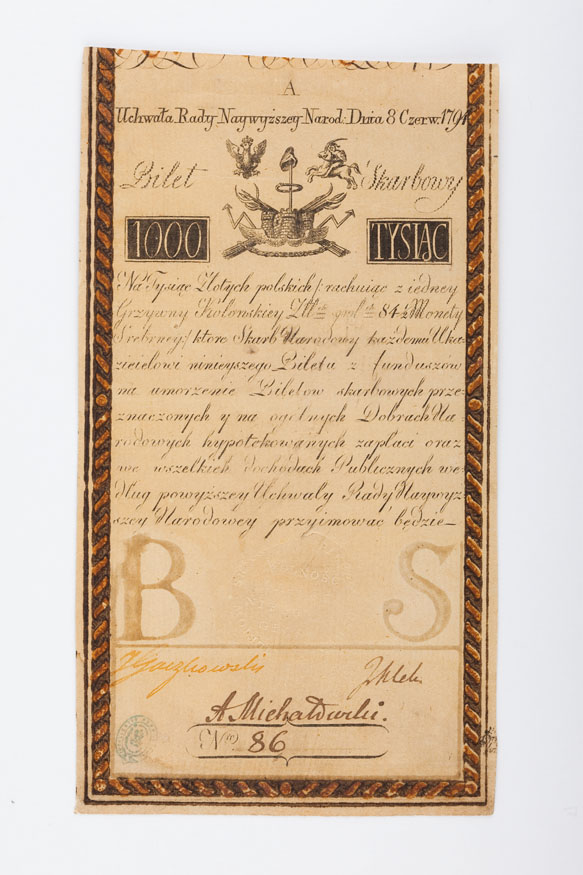 A.
Uchwała Rady Naywyższey Narod: Dnia 8 Czerw. 1794
Bilet Skarbowy
1000 TYSIĄC
Na Tysiąc Złotych polskich /: rachuiąc z iedney
Grzywny Kolońskiey Ztt 84½ Monety
Srebrney :/ ktore Skarb Narodowy każdemu Uka
zicielowi ninieyszego Biletu z funduszow
na umorzenie Biletow skarbowych prze-
znaczonych y na ogolnych Dobrach Na
rodowych hypotekowanych zapłaci oraz
we wszelkich dochodach Publicznych we-
dług powyższey Uchwały Rady Naywyż
szey Narodowey przyimować będzie
B S
A Michałowski.
No 86